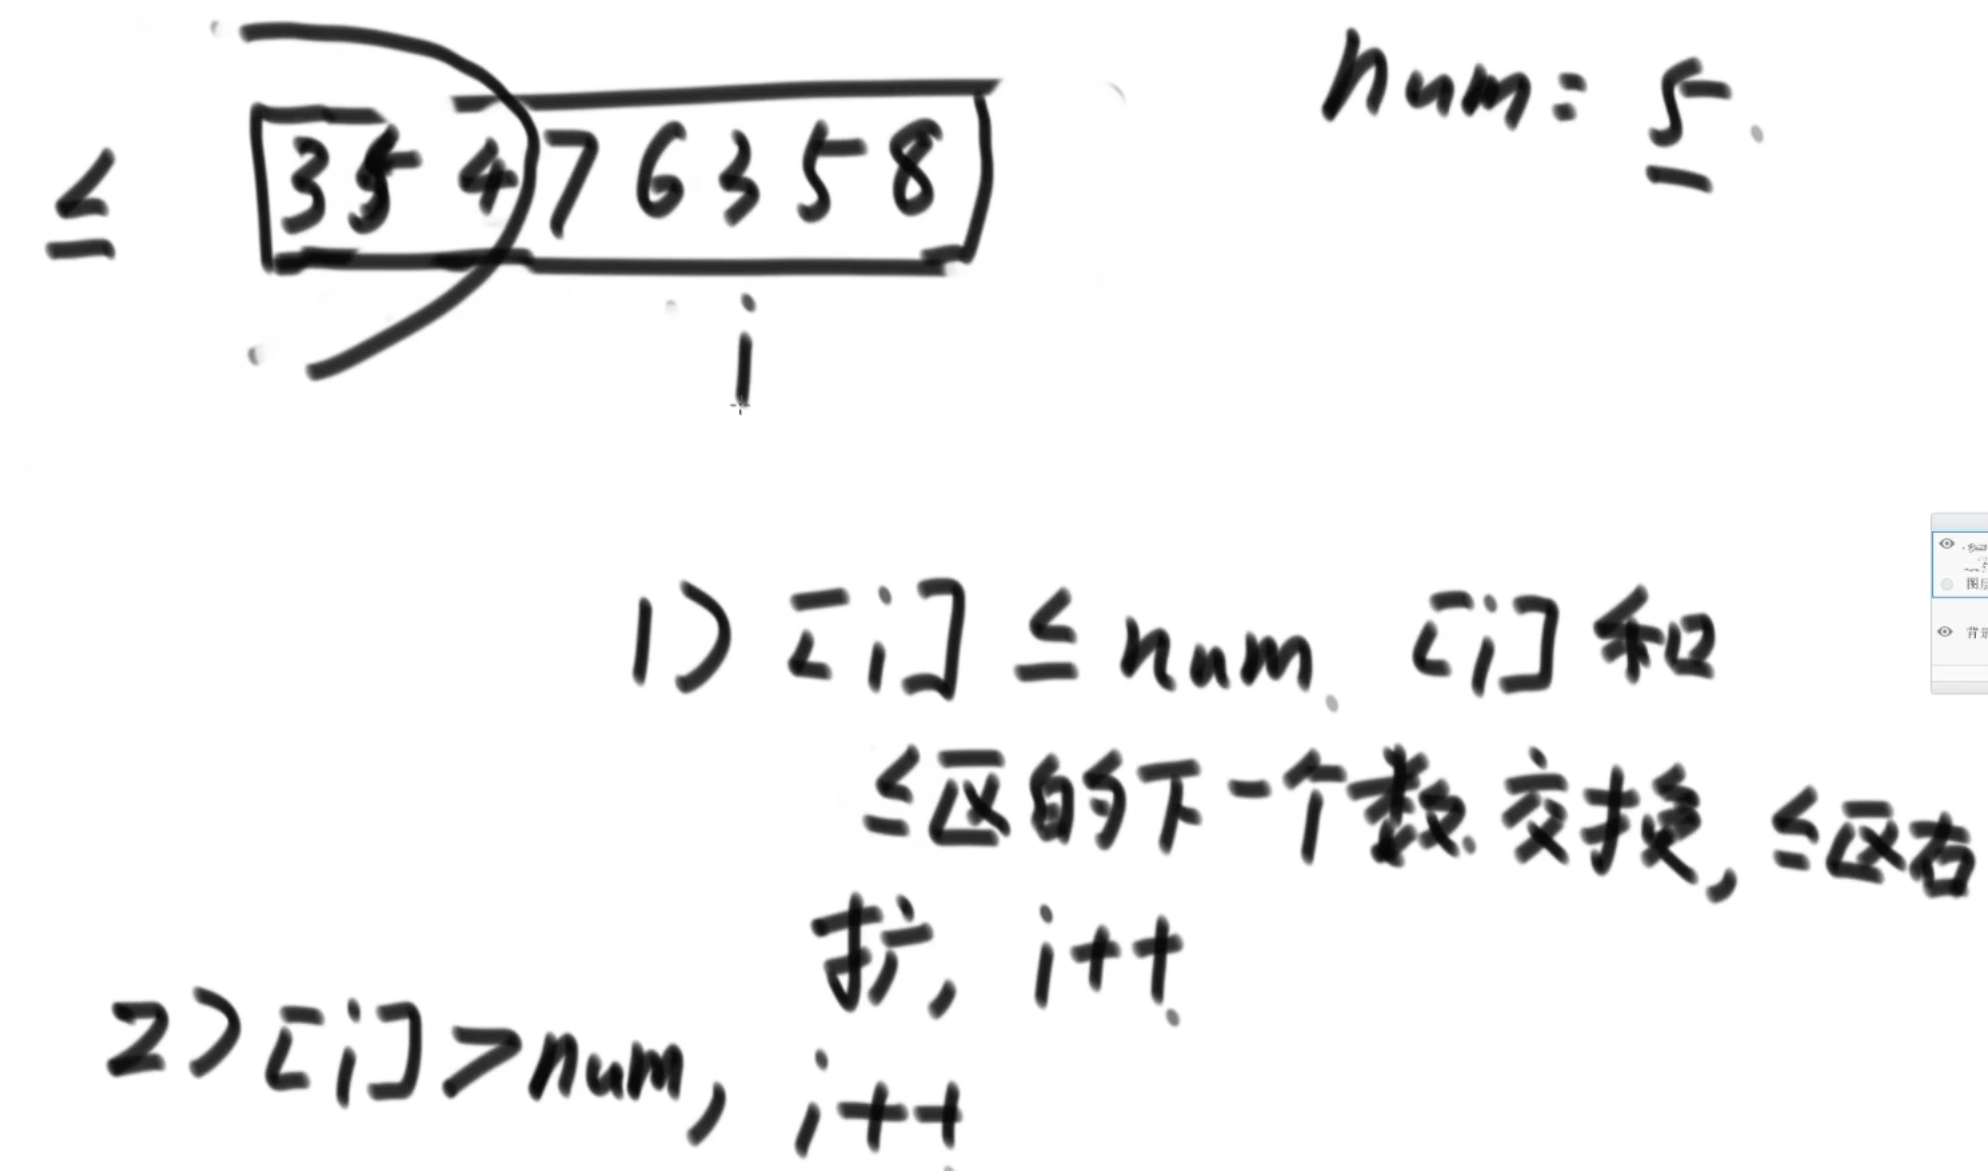 num = 5
≤ 3 5 4 7 6 3 5 8
i
1) [i] ≤ num. [i] 和
≤区的下一个数交换, ≤区右
扩, i++
2) [i] > num, i++